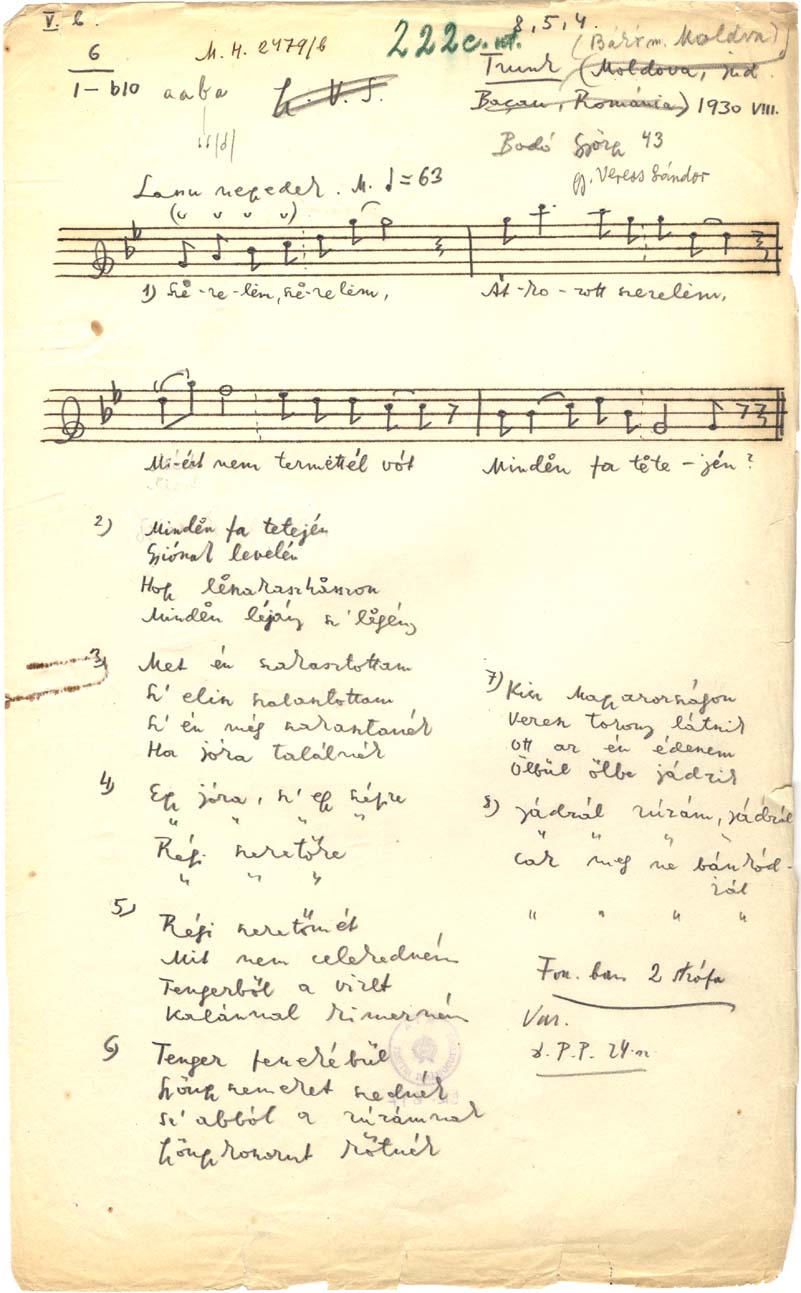 V. b.
6
I – b10
M. H. 2479/b
aaba
222c.
8, 5, 4.
Trunk (Moldova, jud.
(Bákó m. Moldva)
Bacau, România) 1930 VIII.
Bodó György 43
gy. Veress Sándor
M. = 63
1) Szë-re-lëm, szë-relëm, Át-ko-zott szerelëm,
Mi-ért nem termëttél vót Mindën fa tëte-jén?
2) Mindën fa tetején
Gyiónak levelén
Hogy lëszakaszhâsszon
Mindën léjány sz' lëgény
3) Met én szakasztottam
Sz' elis szalasztottam
Sz' én még szakasztanék
Ha jóra találnék
4) Egy jóra, sz' egy szépre
" " " "
Régi szeretőre
" " "
5) Régi szeretőmét
Mit nem celekedném
Tengerből a vizet
Kalánnal kimerném
6) Tenger fenekébül
Gyöngyszemeket szednék
Sz' abból a rúzámnak
Gyöngykoszorut kötnék
7) Kis Magyarországon
Veres torony látszik
Ott az én édesem
Ölbül ölbe jádzik
8) Jádzál rúzám, jádzál
" " " "
Csak meg ne bánkód-
zál
" " " "
Fon. ban 2 strófa
Var.
P. P. 24.